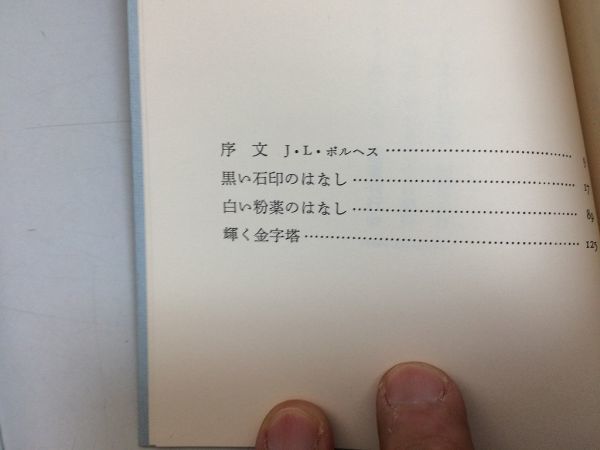 序 文 J・L・ボルヘス……………………………
黒い石印のはなし…………………………………17
白い粉薬のはなし…………………………………89
輝く金字塔…………………………………………125